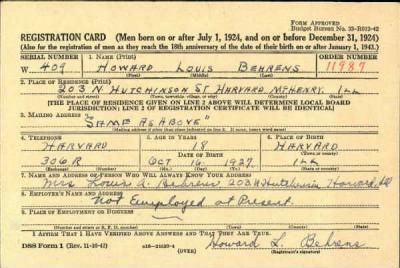 FORM APPROVED
Budget Bureau No. 33-R012-42
REGISTRATION CARD (Men born on or after July 1, 1924, and on or before December 31, 1924)
(Also for the registration of men as they reach the 18th anniversary of the date of their birth on or after January 1, 1943.)
SERIAL NUMBER 1. NAME (Print) ORDER NUMBER
W 409 HOWARD LOUIS BEHRENS 11987
(First) (Middle) (Last)
2. PLACE OF RESIDENCE (Print)
203 N. HUTCHINSON ST HARVARD MCHENRY. ILL
(Number and street) (County) (State)
[THE PLACE OF RESIDENCE GIVEN ON LINE 2 ABOVE WILL DETERMINE LOCAL BOARD
JURISDICTION; LINE 2 OF REGISTRATION CERTIFICATE WILL BE IDENTICAL]
3. MAILING ADDRESS
"SAME AS ABOVE"
(Mailing address if other than place indicated on line 2. If same, insert word same)
4. TELEPHONE 5. AGE IN YEARS 6. PLACE OF BIRTH
HARVARD 18 HARVARD
DATE OF BIRTH
306 R OCT 16 1927 ILL
(Mo.) (Day) (Yr.)
7. NAME AND ADDRESS OF PERSON WHO WILL ALWAYS KNOW YOUR ADDRESS
Mrs Louis A. Behrens, 203 N Hutchinson Harvard, Ill
8. EMPLOYER'S NAME AND ADDRESS
Not Employed at Present.
9. PLACE OF EMPLOYMENT OR BUSINESS
I AFFIRM THAT I HAVE VERIFIED ABOVE ANSWERS AND THAT THEY ARE TRUE.
DSS Form 1 (Rev. 11-16-42) (OVER) Howard L. Behrens
(Registrant's signature)